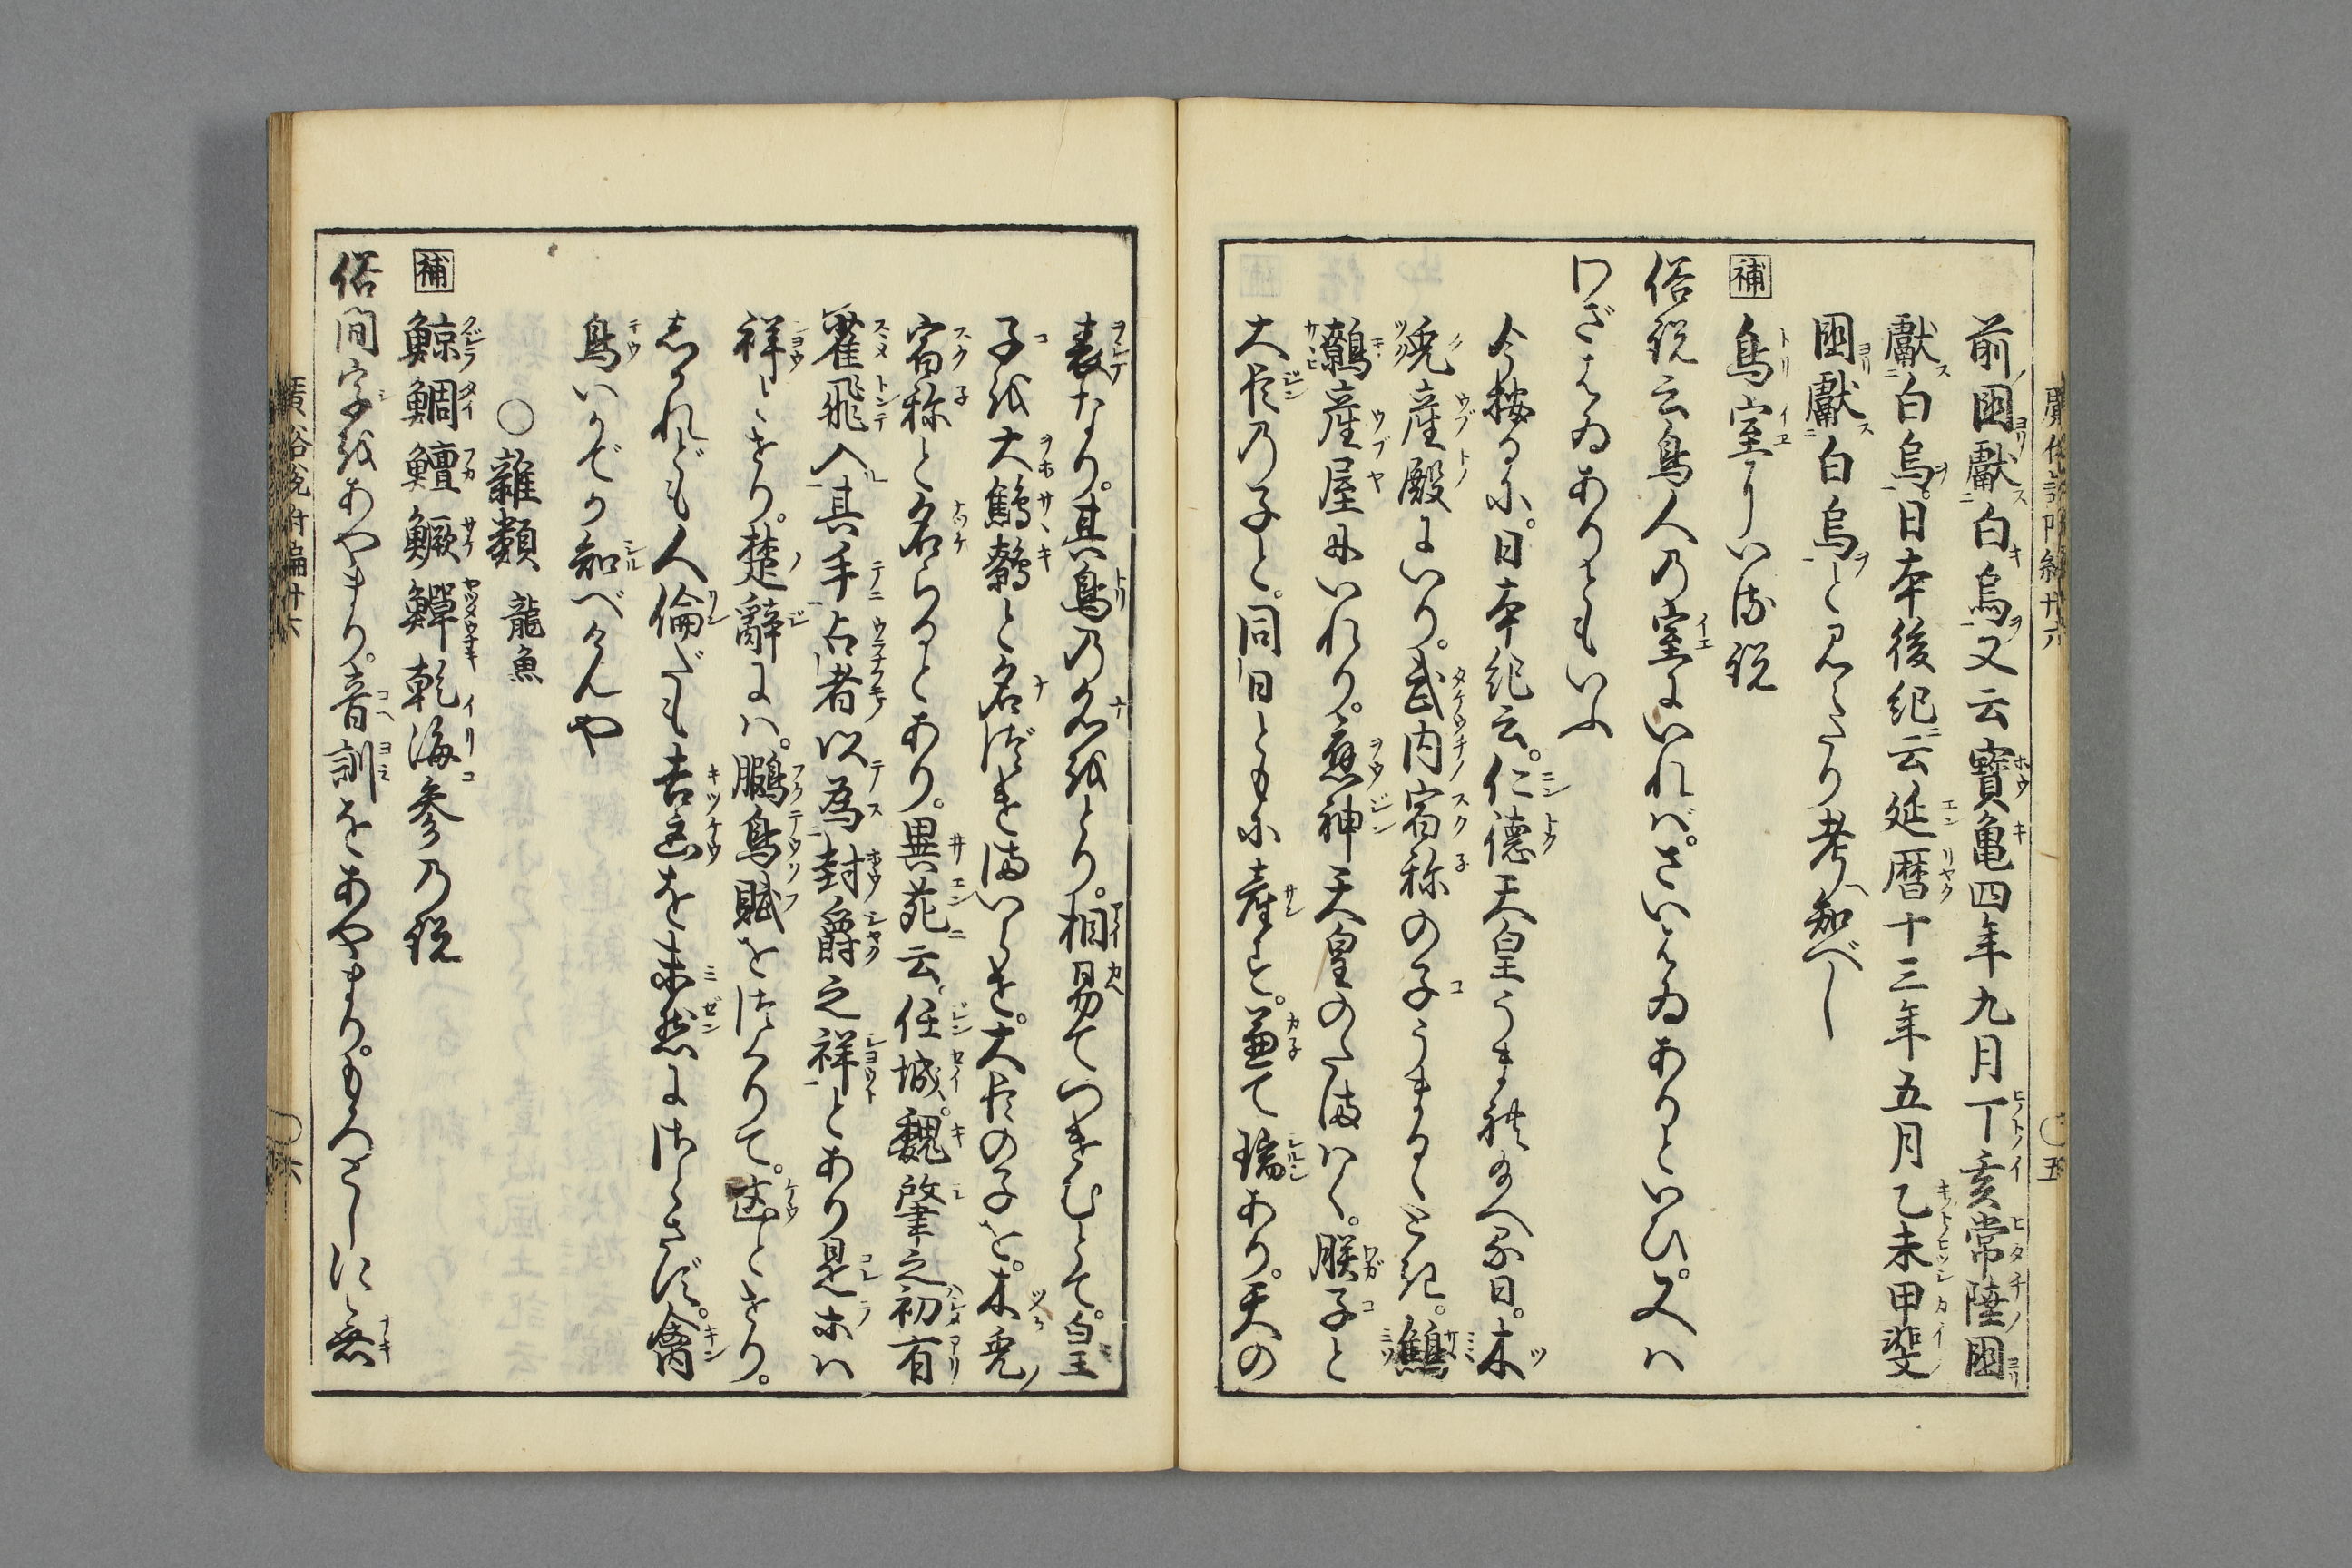 前国獻白烏又云寶亀四年九月丁亥常陸国
獻白烏。日本後紀云延暦十三年五月乙未甲斐
国獻白烏と見へたり考知べし
補 鳥室にいる説
俗説云鳥人の室にいればさいはゐありといひ。又ハ
わざはゐありともいふ
今按るに。日本紀云。仁徳天皇うまれ給へる日。木
兎産殿にいり。武内宿祢の子うまるゝとき。鷦
鷯産屋にいれり。應神天皇のたまはく。朕子と
大臣の子と。同日ともに産す。兼て瑞あり。天の
表なり。其鳥の名をとり。相易てつきむとて。皇
子を大鷦鷯と名づけたまひき。大臣の子を。木兎
宿祢と名らるとあり。異苑云。任城。魏肇之初有
雀飛入其手占者以為封爵之祥とあり是ホハ
祥とせり。楚辭にハ。鵩鳥賦をつくりて。凶とせり。
しかれども人倫だも吉凶を未然にはしらず。禽
鳥いかでか知べけんや
○雜類 龍魚
補 鯨鯛鱣鱖鱓乾海參の説
俗間字をあやまり。音訓をあやまり。もんさしに無
廣俗説附編廿六
五
廣俗説附編廿六
六